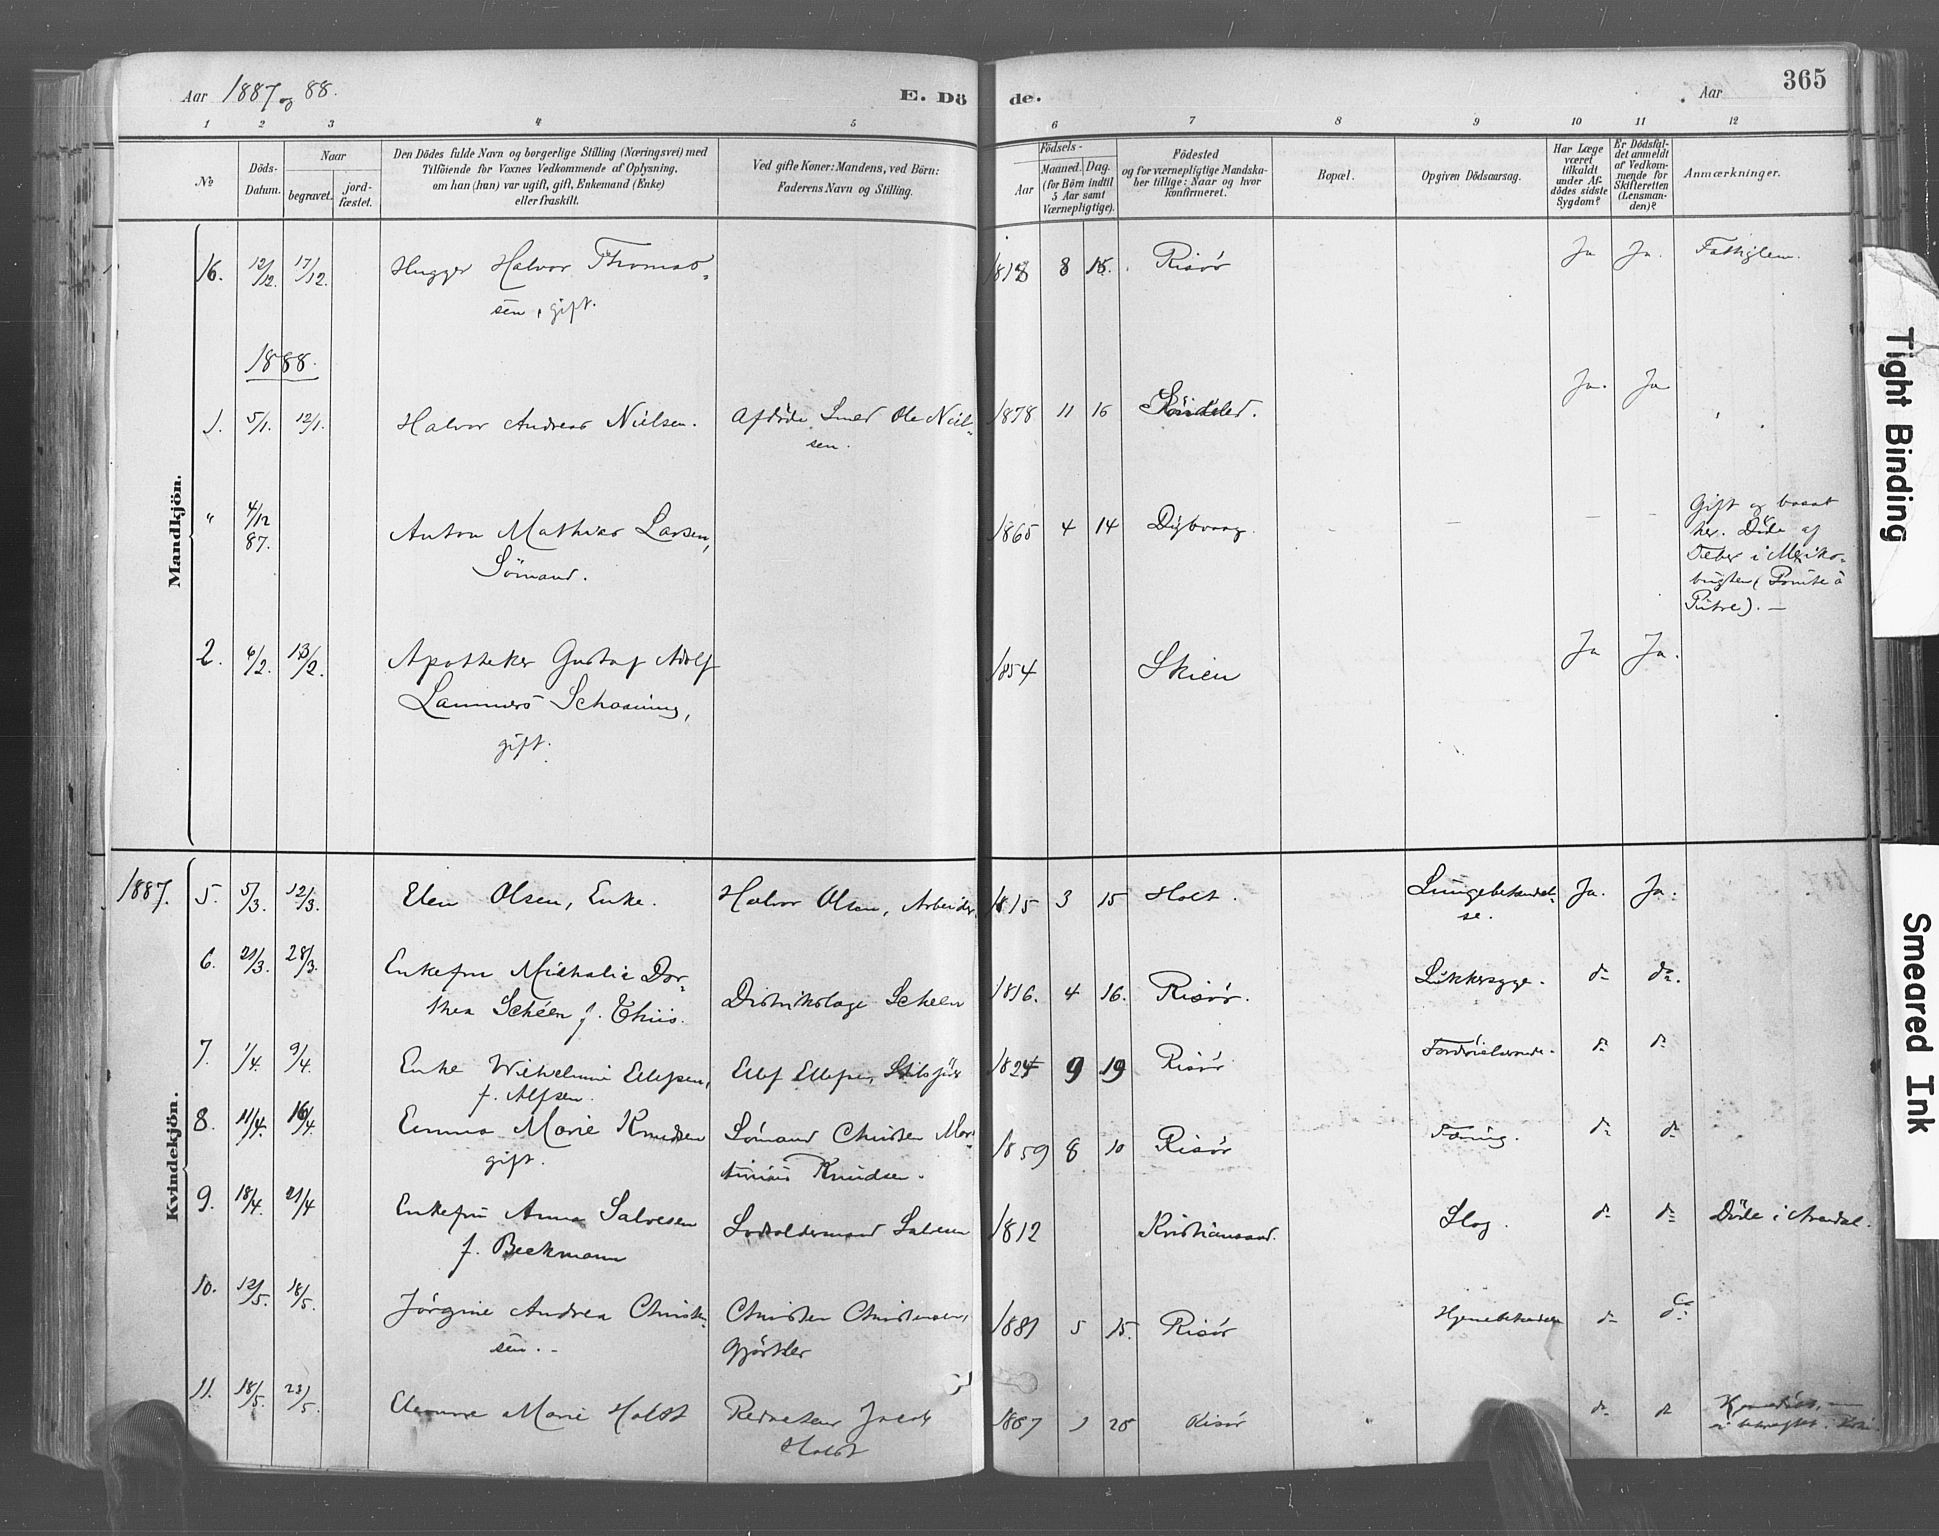 Aar 1887 og 88.
E. Dö de.
Aar
365
1 2 3 4 5 6 7 8 9 10 11 12
No
Döds-Datum.
Naar
begravet.
jord-fæstet.
Den Dödes fulde Navn og borgerlige Stilling (Næringsvei) med
Tilföiende for Voxnes Vedkommende af Oplysning,
om han (hun) var ugift, gift, Enkemand (Enke)
eller fraskilt.
Ved gifte Koner: Mandens, ved Börn:
Faderens Navn og Stilling.
Födsels-
Aar
Maaned. Dag.
(for Börn indtil
5 Aar samt
Værnepligtige).
Födested
og for værnepligtige Mandska-
ber tillige: Naar og hvor
konfirmeret.
Bopæl.
Opgiven Dödsaarsag.
Har Læge
været
tilkaldt
under Af-
dödes sidste
Sygdom?
Er Dödsfal-
det anmeldt
af Vedkom-
mende for
Skifteretten
(Lensman-
den)?
Anmærkninger.
Mandkjön.
16. 12/12. 17/12. Hugger Halvor Thomas- 8 15. Risør Ja Ja. Fattiglem.
sen, gift.
1888.
1. 5/1. 12/1. Halvor Andreas Nielsen. Afdöde Smed Ole Niel- 1878 11 16 Söndeled. Ja. Ja
sen.
" 4/12 87. Anton Mathias Larsen, 1865 4 14 Dybvaag. — — Gift og bosat
Sömand. her. Döde af
Feber i Mexiko-
bugten (Pointe à
Pitre). —
2. 6/2. 13/2. Apotheker Gustaf Adolf 1854 Skien Ja Ja.
Lammers Schoaning,
gift.
Kvindekjön.
1887. 5. 5/3. 12/3. Elen Olsen, Enke. Halvor Olsen, Arbeider 1815 3 15 Holt. Lungebetændel- Ja. Ja.
se.
6. 21/3. 28/3. Enkefru Michalie Dor- 1816. 4 16. Risør. d- do.
thea Schéen f. Thiis. Distriktslæge Scheen
7. 1/4. 9/4. Enke Wilhelmine Ellefsen, Ellef Ellefsen, 1824 9 19 Risør d- d-
f. Alfsen.
8. 11/4. 16/4. Emma Marie Knudsen Sömand Christen Mar- 1859 8 10 Risør Tæring. d- d-
gift. tinius Knudsen.
9. 18/4. 21/4 Enkefru Anna Salvesen Lodsoldermand Salvesen 1812 Kristianssand. Slag. d- d- Döde i Arendal.
f. Beckmann
10. 12/5. 18/5. Jörgine Andrea Christen- Christen Christensen, 1881 5 15. Risør Hjernebetændelse d- d-
sen. - Gjørtler
11. 18/5. 23/5. Marie Holst Redacteur Jacob 1887 28 Risør d- d-
Holst
Tight Binding
Smeared Ink